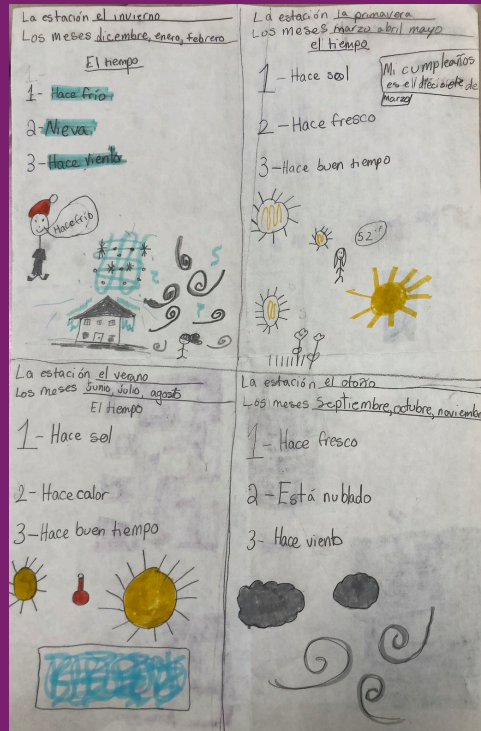 La estación el invierno
Los meses dicembre, enero, febrero
El tiempo
1- Hace frío
2- Nieva
3- Hace viento
Hace frío
La estación la primavera
Los meses marzo abril mayo
el tiempo
1- Hace sol
Mi cumpleaños
es el diecisiete de
marzo
2- Hace fresco
3- Hace buen tiempo
52°F
La estación el verano
Los meses junio, julio, agosto
El tiempo
1- Hace sol
2- Hace calor
3- Hace buen tiempo
La estación el otoño
Los meses Septiembre, octubre, noviembre
1- Hace fresco
2- Está nublado
3- Hace viento